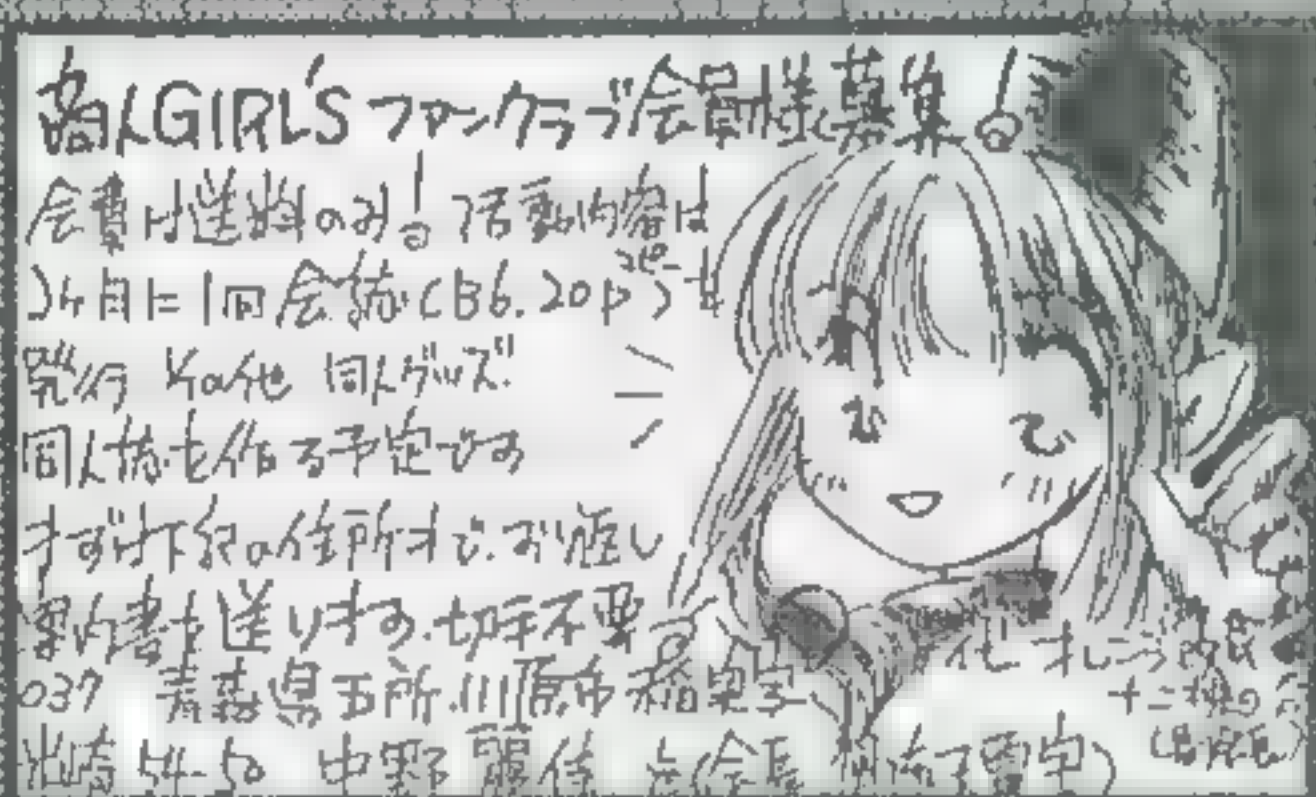 商人GIRL'S ファンクラブ会員様募集!
会費は送料のみ! 活動内容は
2ヶ月に1回会誌(B6.20p コピー)を
発行 その他 同人グッズ
同人誌を作る予定です
まずは下記の住所まで.お返し
案内書を送ります.切手不要
037 青森県五所川原市稲実字
崎54-50 中野 会長